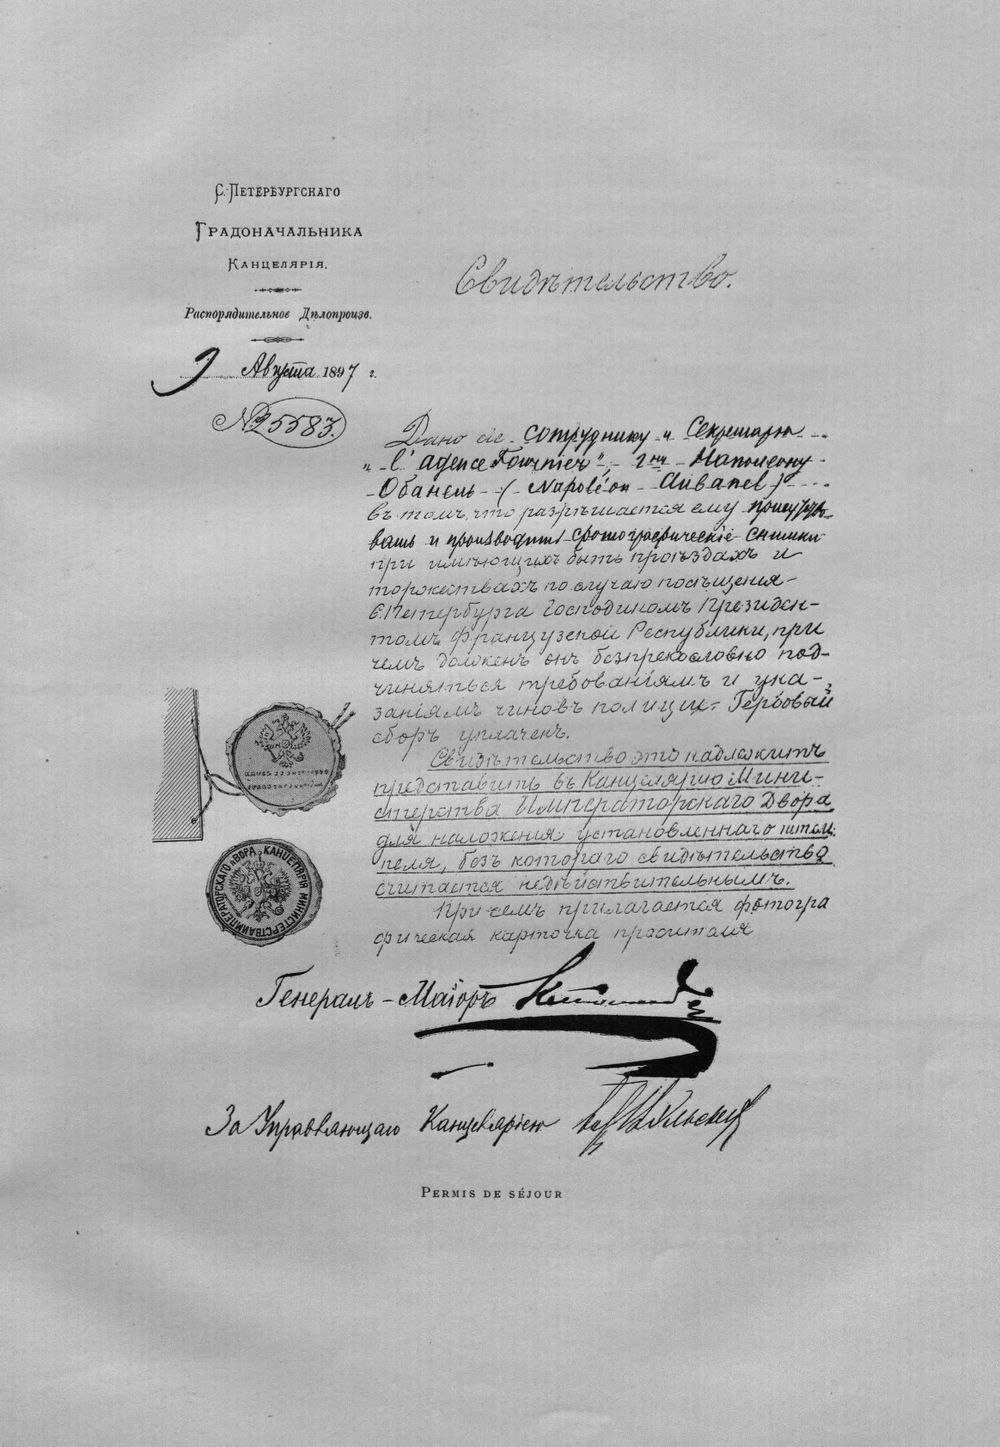 С.-Петербургскаго
Градоначальника
Канцелярія.
Распорядительное Дѣлопроизв.
9 Августа 1897 г.
№ 25583.
Свидѣтельство.
Дано сіе сотруднику и Секретарю
"l'agence Fournier", г-ну Наполеону
Обанель (Napoléon Aubanel)
въ томъ, что разрѣшается ему присутство-
вать и производить фотографическіе снимки
при имѣющихъ быть проѣздахъ и
торжествахъ по случаю посѣщенія
С.Петербурга Господиномъ Президен-
томъ Французской Республики, при
чемъ долженъ онъ безпрекословно под-
чиняться требованіямъ и ука-
заніямъ чиновъ полиціи. Гербовый
сборъ уплаченъ.
Свидѣтельство это надлежитъ
представить въ Канцелярію Мини-
стерства Императорскаго Двора
для наложенія установленнаго штем-
пеля, безъ котораго свидѣтельство
считается недѣйствительнымъ.
При семъ прилагается фотогра
фическая карточка просителя
КАНЦЕЛЯРІЯ МИНИСТЕРСТВА ИМПЕРАТОРСКАГО ДВОРА
Генералъ-Маіоръ
За Управляющаго Канцеляріею
Permis de séjour